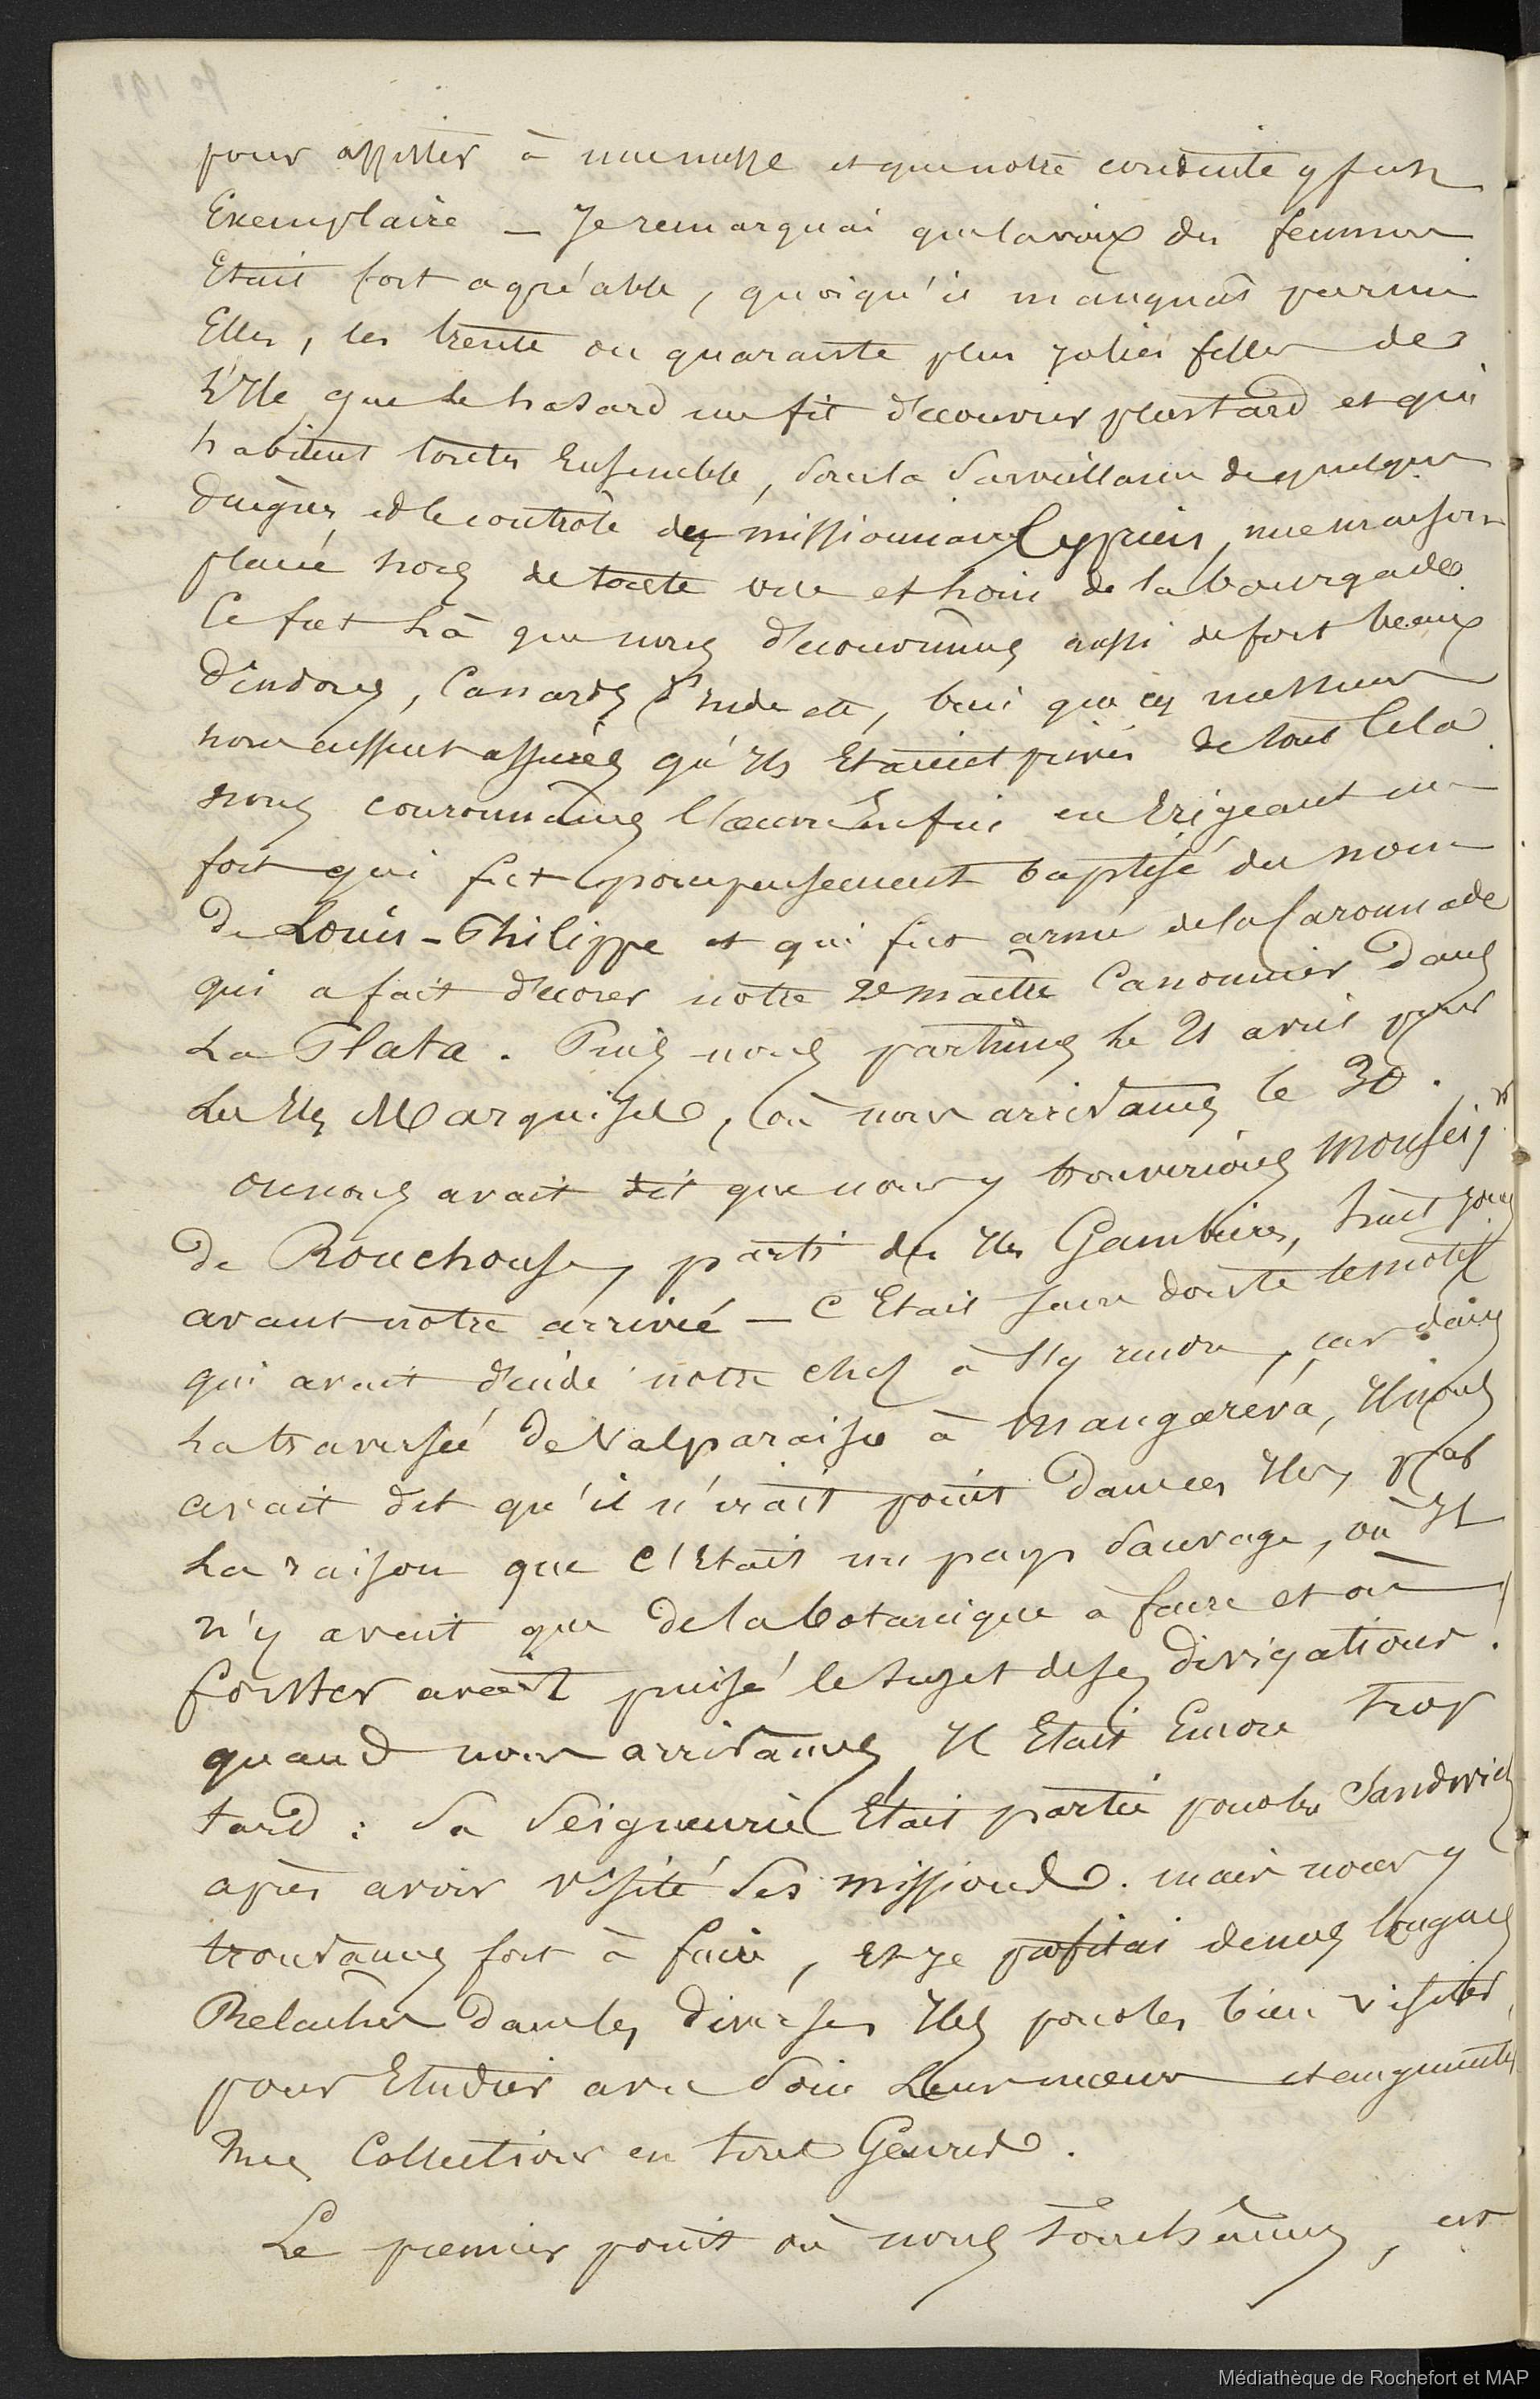 pour assister à une messe et que notre conduite y fut
Exemplaire _ Je remarquai que la voix des femmes
Etait fort agréable, quoiqu'il manquât parmi
Elles, les trente ou quarante plus jolies filles de
L'Ile que le hasard me fit découvrir plus tard et qui
habitent toutes Ensemble, sous la Surveillance de quelques
duègnes et le contrôle des missionnaires, une maison
placée hors de toute vue et loin de la bourgade
Ce fut Là que nous découvrimes aussi de fort beaux
dindons, Canards d'Inde etc, bien que ces messieurs
nous eussent assurés qu'Ils Etaient privés de tout Cela
nous couronnâmes l'œuvre Enfin en Erigeant un
fort qui fut pompeusement baptisé du nom
De Louis-Philippe et qui fut armé de la Caronnade
qui a fait décorer notre 2e maître Canonnier dans
La Plata. Puis nous partimes le 21 avril pour
Les Iles Marquises, où nous arrivâmes le 30.
on nous avait dit que nous y trouverions Monseigr
De Rouchouse, parti des Iles Gambier, huit jours
avant notre arrivée _ C'Etait sans doute le motif
qui avait décidé notre chef à s'y rendre, car dans
La traversée de Valparaiso à Mangaréva, Il nous
avait dit qu'il n'irait point dans ces Iles, par
La raison que C'Etait un pays Sauvage, où Il
n'y avait que de la botanique à faire et où
forster avait puisé le sujet de ses divigations!
quand nous arrivâmes Il Etait Encore trop
tard : Sa Seigneurie Etait partie pour les Sandwich
après avoir visité Ses missions. mais nous y
trouvâmes fort à faire, Et je profitai de nos longues
Relaches dans les diverses Iles pour les bien visiter,
pour Etudier avec Soin Leurs mœurs et augmenter
mes Collections en tout Genres.
Le premier point où nous touchâmes, est
Médiathèque de Rochefort et MAP